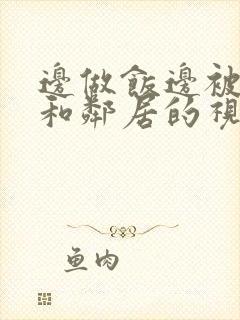 邊做飯邊被
和鄰居的視
鱼肉